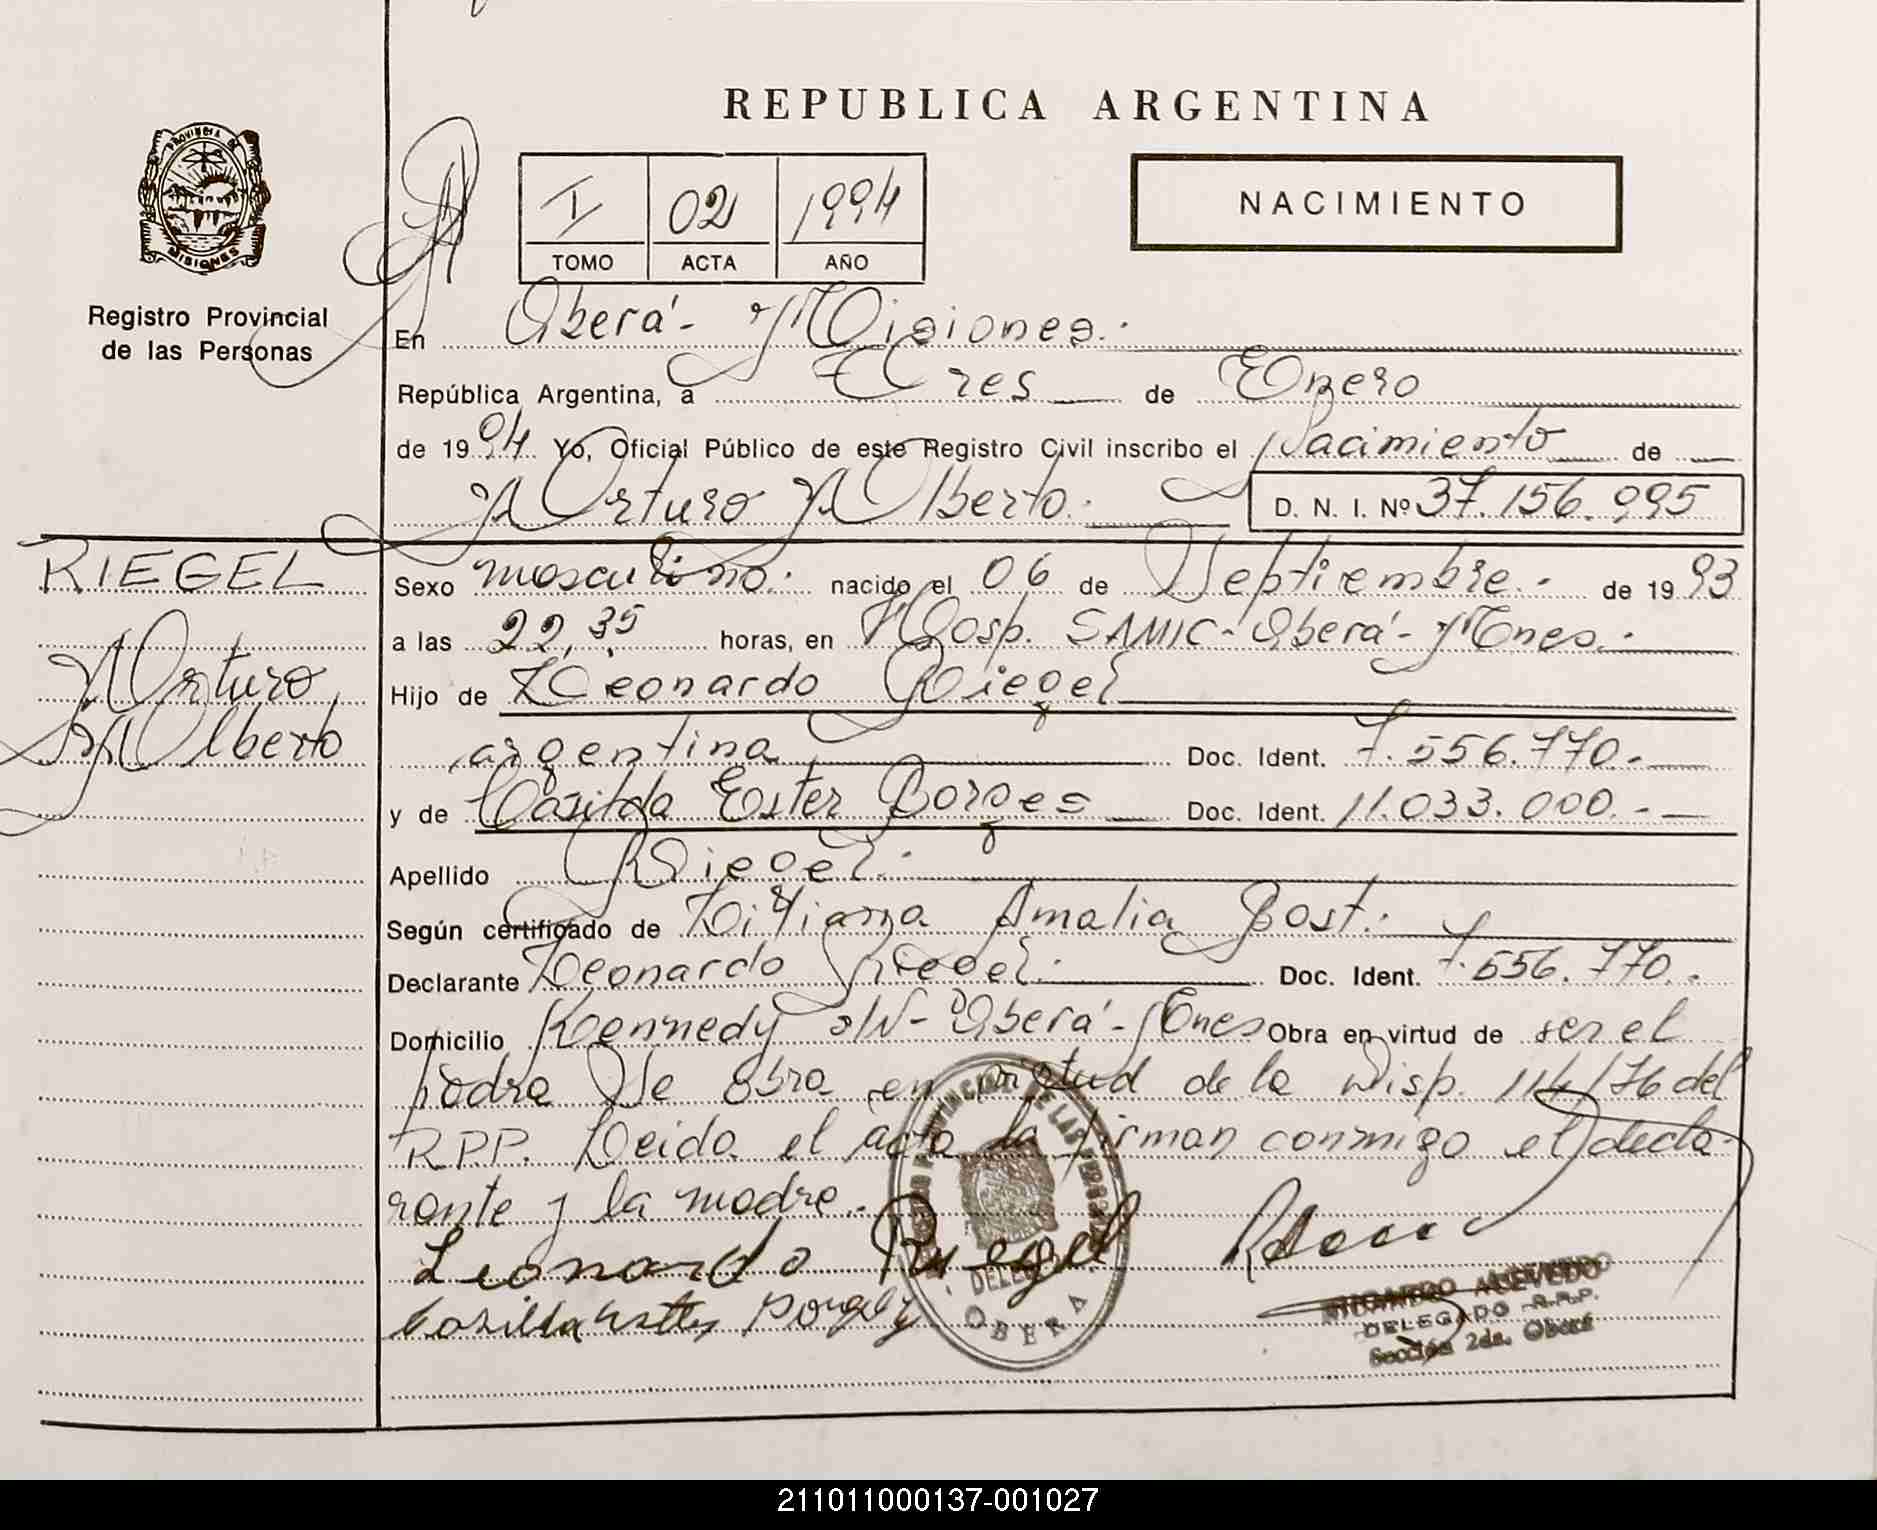 REPUBLICA ARGENTINA
PROVINCIA DE
MISIONES
Registro Provincial
de las Personas
I 02 1994
TOMO ACTA AÑO
NACIMIENTO
En Oberá - Misiones.
República Argentina, a Tres de Enero
de 1994 Yo, Oficial Público de este Registro Civil inscribo el Nacimiento de
Arturo Alberto. D. N. I. Nº 37.156.995
RIEGEL
Arturo
Alberto
Sexo masculino. nacido el 06 de Septiembre. de 1993
a las 22,35 horas, en Hosp. SAMIC - Oberá - Mnes.
Hijo de Leonardo Riegel
argentina Doc. Ident. 7.556.770.-
y de Casilda Ester Borges Doc. Ident. 11.033.000.-
Apellido Riegel.
Según certificado de Liliana Amalia Bost.
Declarante Leonardo Riegel. Doc. Ident. 7.556.770.
Domicilio Kennedy s/N - Oberá - Mnes Obra en virtud de ser el
padre Se obra en virtud de la Disp. 114/76 del
RPP. Leida el acta la firman conmigo el decla-
rante y la madre.
Leonardo Riegel
DELEG
OBERA
ACEVEDO
DELEGADO R.P.P.
Sección 2da. Oberá
211011000137-001027